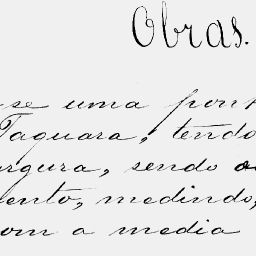 Obras.
se uma pont
Taquara, tendo
rgura, sendo
ento, medindo,
om a media